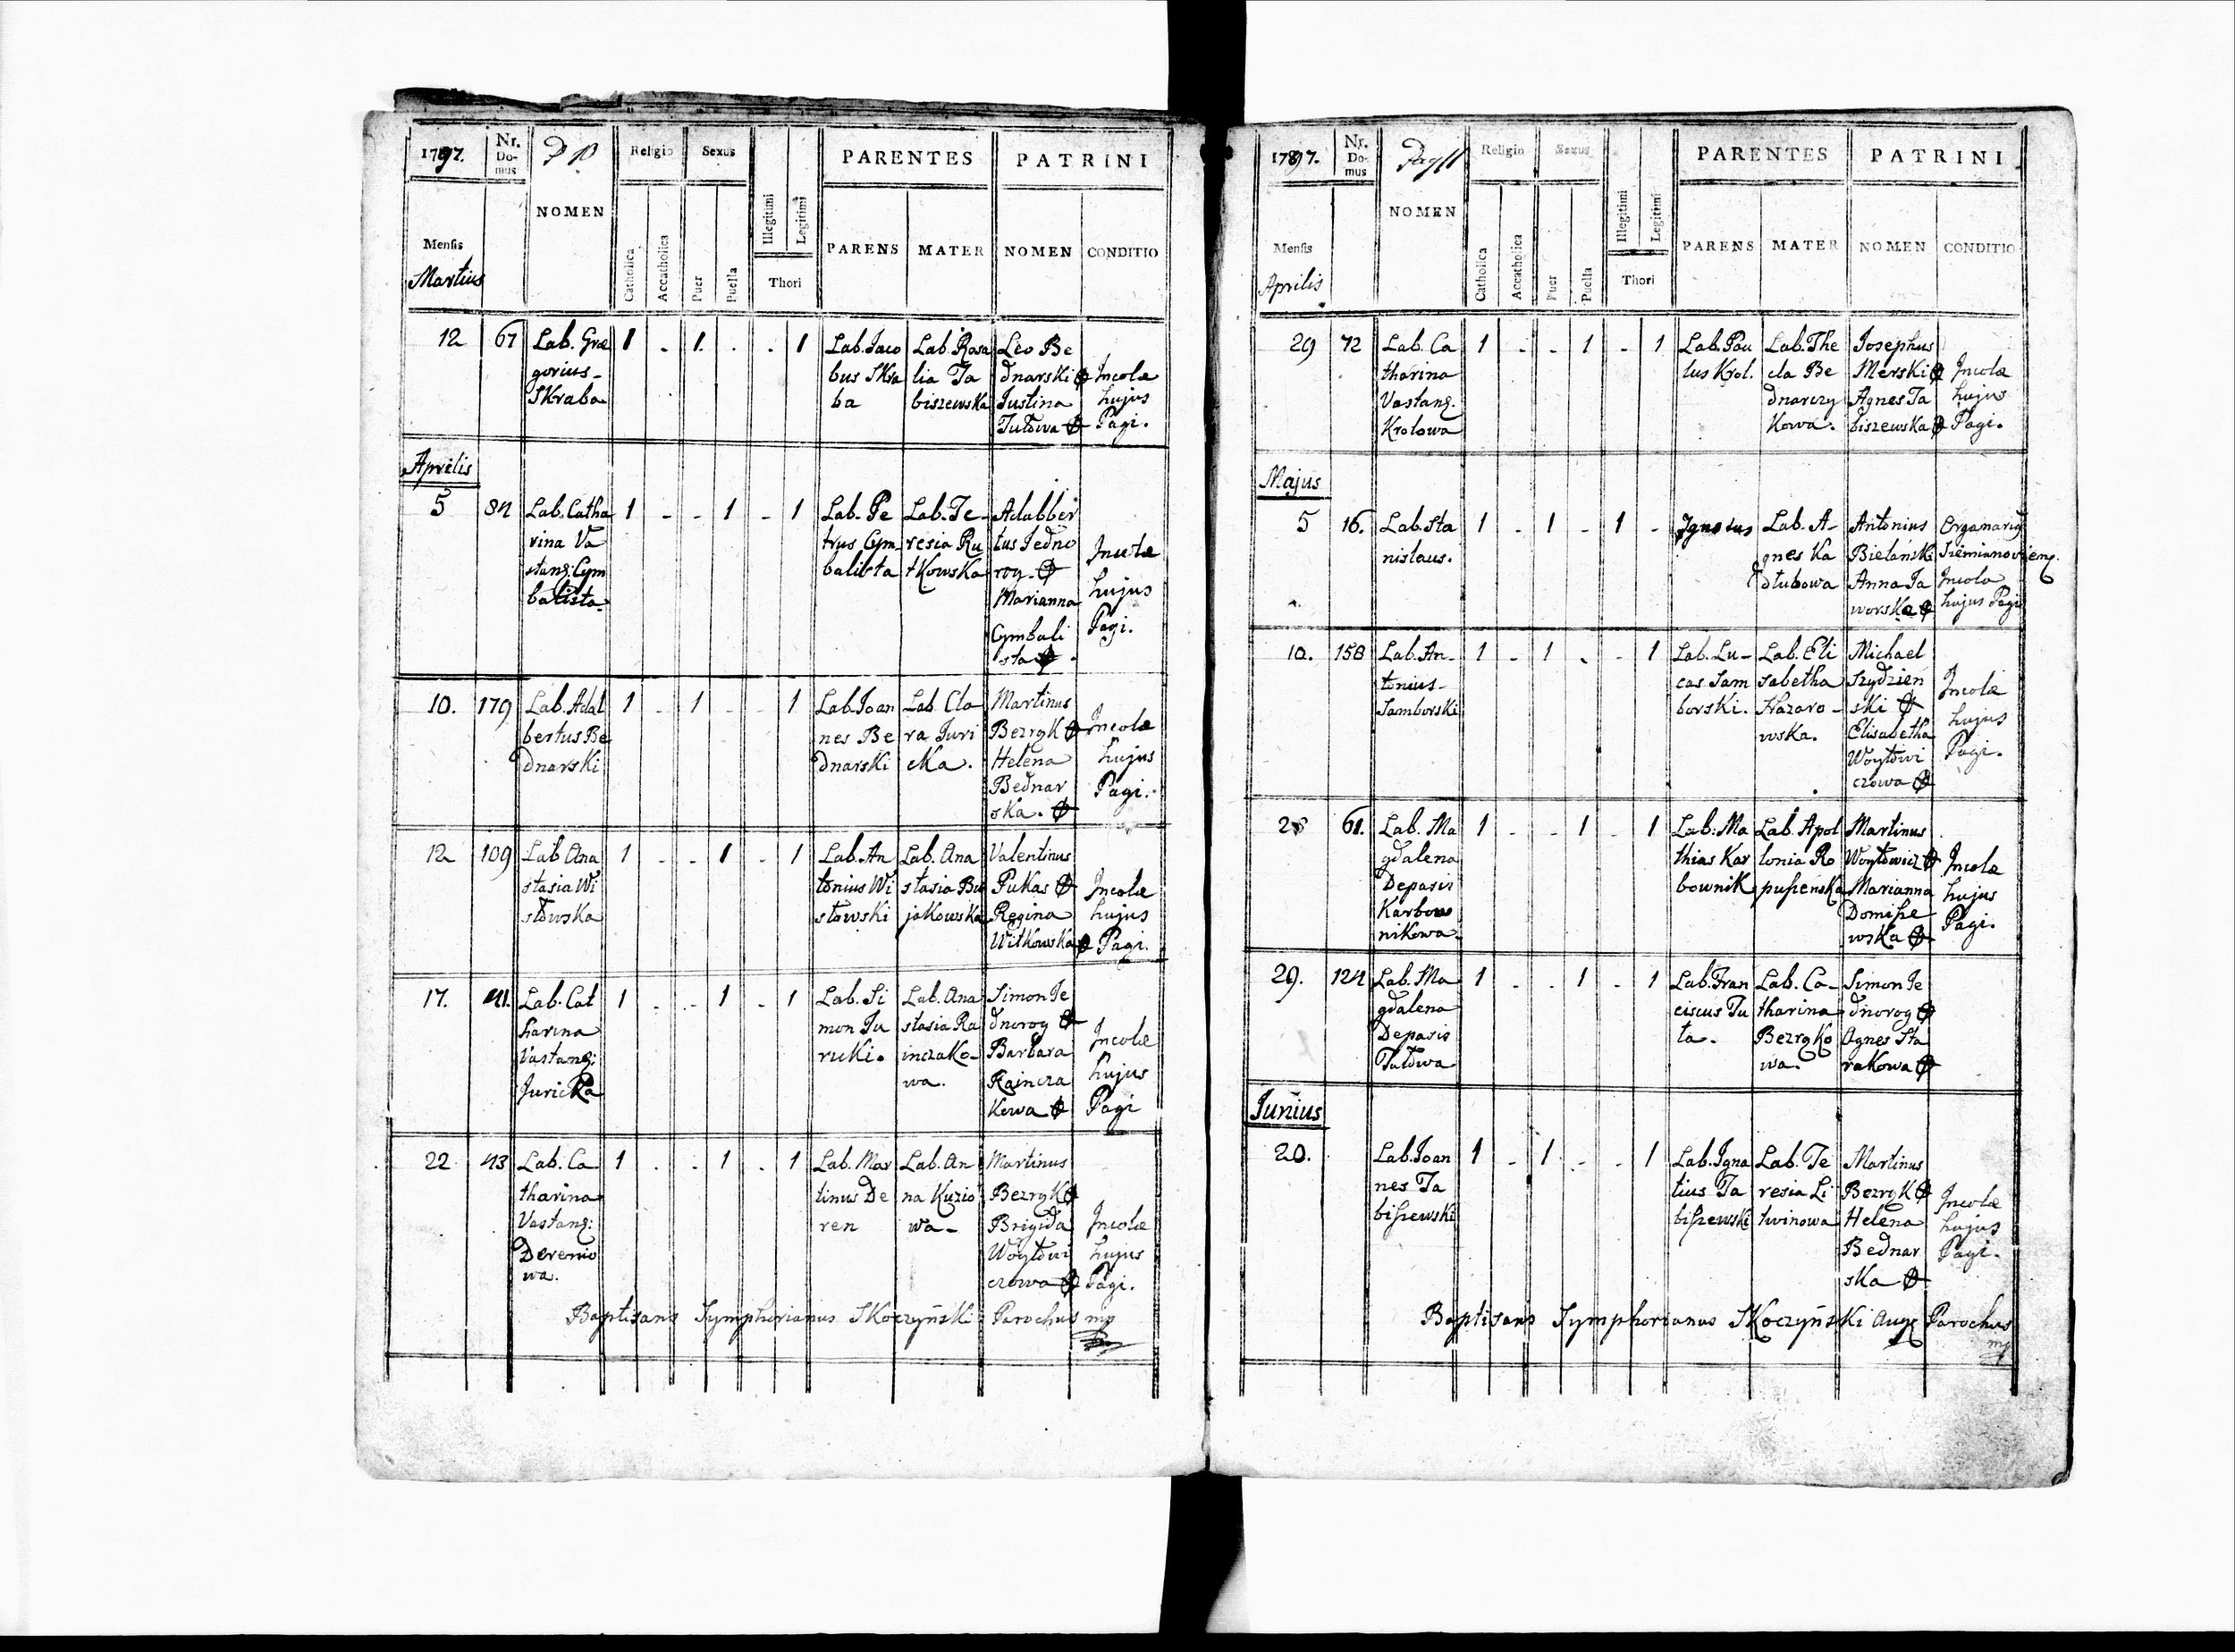 1797.
Nr. Domus
P 10
NOMEN
Religio
Catholica
Accatholica
Sexus
Puer
Puella
Illegitimi
Legitimi
Thori
PARENTES
PARENS
MATER
PATRINI
NOMEN
CONDITIO
Mensis
Martius
12 67
Lab. Græ
gorius
Skraba
1 . 1. . . 1
Lab. Jaco
bus Skra
ba
Lab. Rosa
lia Ja
biszewska
Leo Be
dnarski
Justina
Tutowa
Incolæ
hujus
Pagi.
Aprilis
5 84
Lab. Catha
rina Va
stang: Cym
balista
1 - - 1 - 1
Lab. Pe
trus Cym
balista
Lab. Te
resia Ru
tkowska
Adalber
tus Jedno
rog.
Marianna
Cymbali
sta
Incolæ
hujus
Pagi.
10. 179
Lab. Adal
bertus Be
dnarski
1 - 1 - - 1
Lab. Joan
nes Be
dnarski
Lab. Cla
ra Juri
cka.
Martinus
Bezrgk
Helena
Bednar
ska.
Incolæ
hujus
Pagi.
12 109
Lab. Ana
stasia Wi
słowska
1 - - 1 - 1
Lab. An
tonius Wi
słowski
Lab. Ana
stasia Bu
jakowska
Valentinus
Pukas
Regina
Witkowska
Incolæ
hujus
Pagi.
17. 41.
Lab. Cat
harina
Vastang:
Juricka
1 - - 1 - 1
Lab. Si
mon Ju
ricki.
Lab. Ana
stasia Ra
inczako-
wa.
Simon Je
dnorog
Barbara
Raincza
kowa
Incolæ
hujus
Pagi
22 43
Lab. Ca
tharina
Vastang:
Derenio
wa.
1 . . 1 . 1
Lab. Mar
tinus De
ren
Lab. An
na Kuzio
wa-
Martinus
Bezrgk
Brigida
Woytowi
czowa
Incolæ
hujus
Pagi.
Baptisans Symphorianus Skoczyński Parochus mp
1797.
Nr. Domus
Pag 11
NOMEN
Religio
Catholica
Accatholica
Sexus
Puer
Puella
Illegitimi
Legitimi
Thori
PARENTES
PARENS
MATER
PATRINI
NOMEN
CONDITIO
Mensis
Aprilis
29 72
Lab. Ca
tharina
Vastang.
Krolowa
1 - - 1 - 1
Lab. Pau
lus Krol.
Lab. The
cla Be
dnarczy
kowa.
Josephus
Merski
Agnes Ja
biszewska
Incolæ
hujus
Pagi.
Majus
5 16.
Lab. Sta
nislaus.
1 - 1 - 1 -
Ignotus
Lab. A-
gnes Ka
dłubowa
Antonius
Bielański
Anna Ja
worska
Organariq
Siemianovieng.
Incola
hujus Pagi
10. 158
Lab. An-
tonius
Samborski
1 - 1 - - 1
Lab. Lu-
cas Sam
borski.
Lab. Eli
sabetha
Nazaro-
wska.
Michael
Szydzien
ski
Elisabetha
Woytowi
czowa
Incolæ
hujus
Pagi.
61.
Lab. Ma
gdalena
Depasis
Karbow
nikowa
1 - - 1 - 1
Lab: Ma
thias Kar
bownik
Lab. Apol
lonia Ro
puszeńska
Martinus
Woytowicz
Marianna
Domisze
wska
Incolæ
hujus
Pagi.
29. 124
Lab. Ma
gdalena
Depasis
Tutowa
1 - - 1 - 1
Lab. Fran
ciscus Tu
ta.
Lab. Ca-
tharina
Bezrgko
wa.
Simon Je
dnorog
Agnes Sta
rakowa
Junius
20.
Lab. Joan
nes Ja
biszewski
1 - 1 - - 1
Lab. Igna
tius Ja
biszewski
Lab. Te
resia Li
twinowa
Martinus
Bezrgk
Helena
Bednar
ska
Incolæ
hujus
Pagi.
Baptisans Symphorianus Skoczyński Parochus
mp